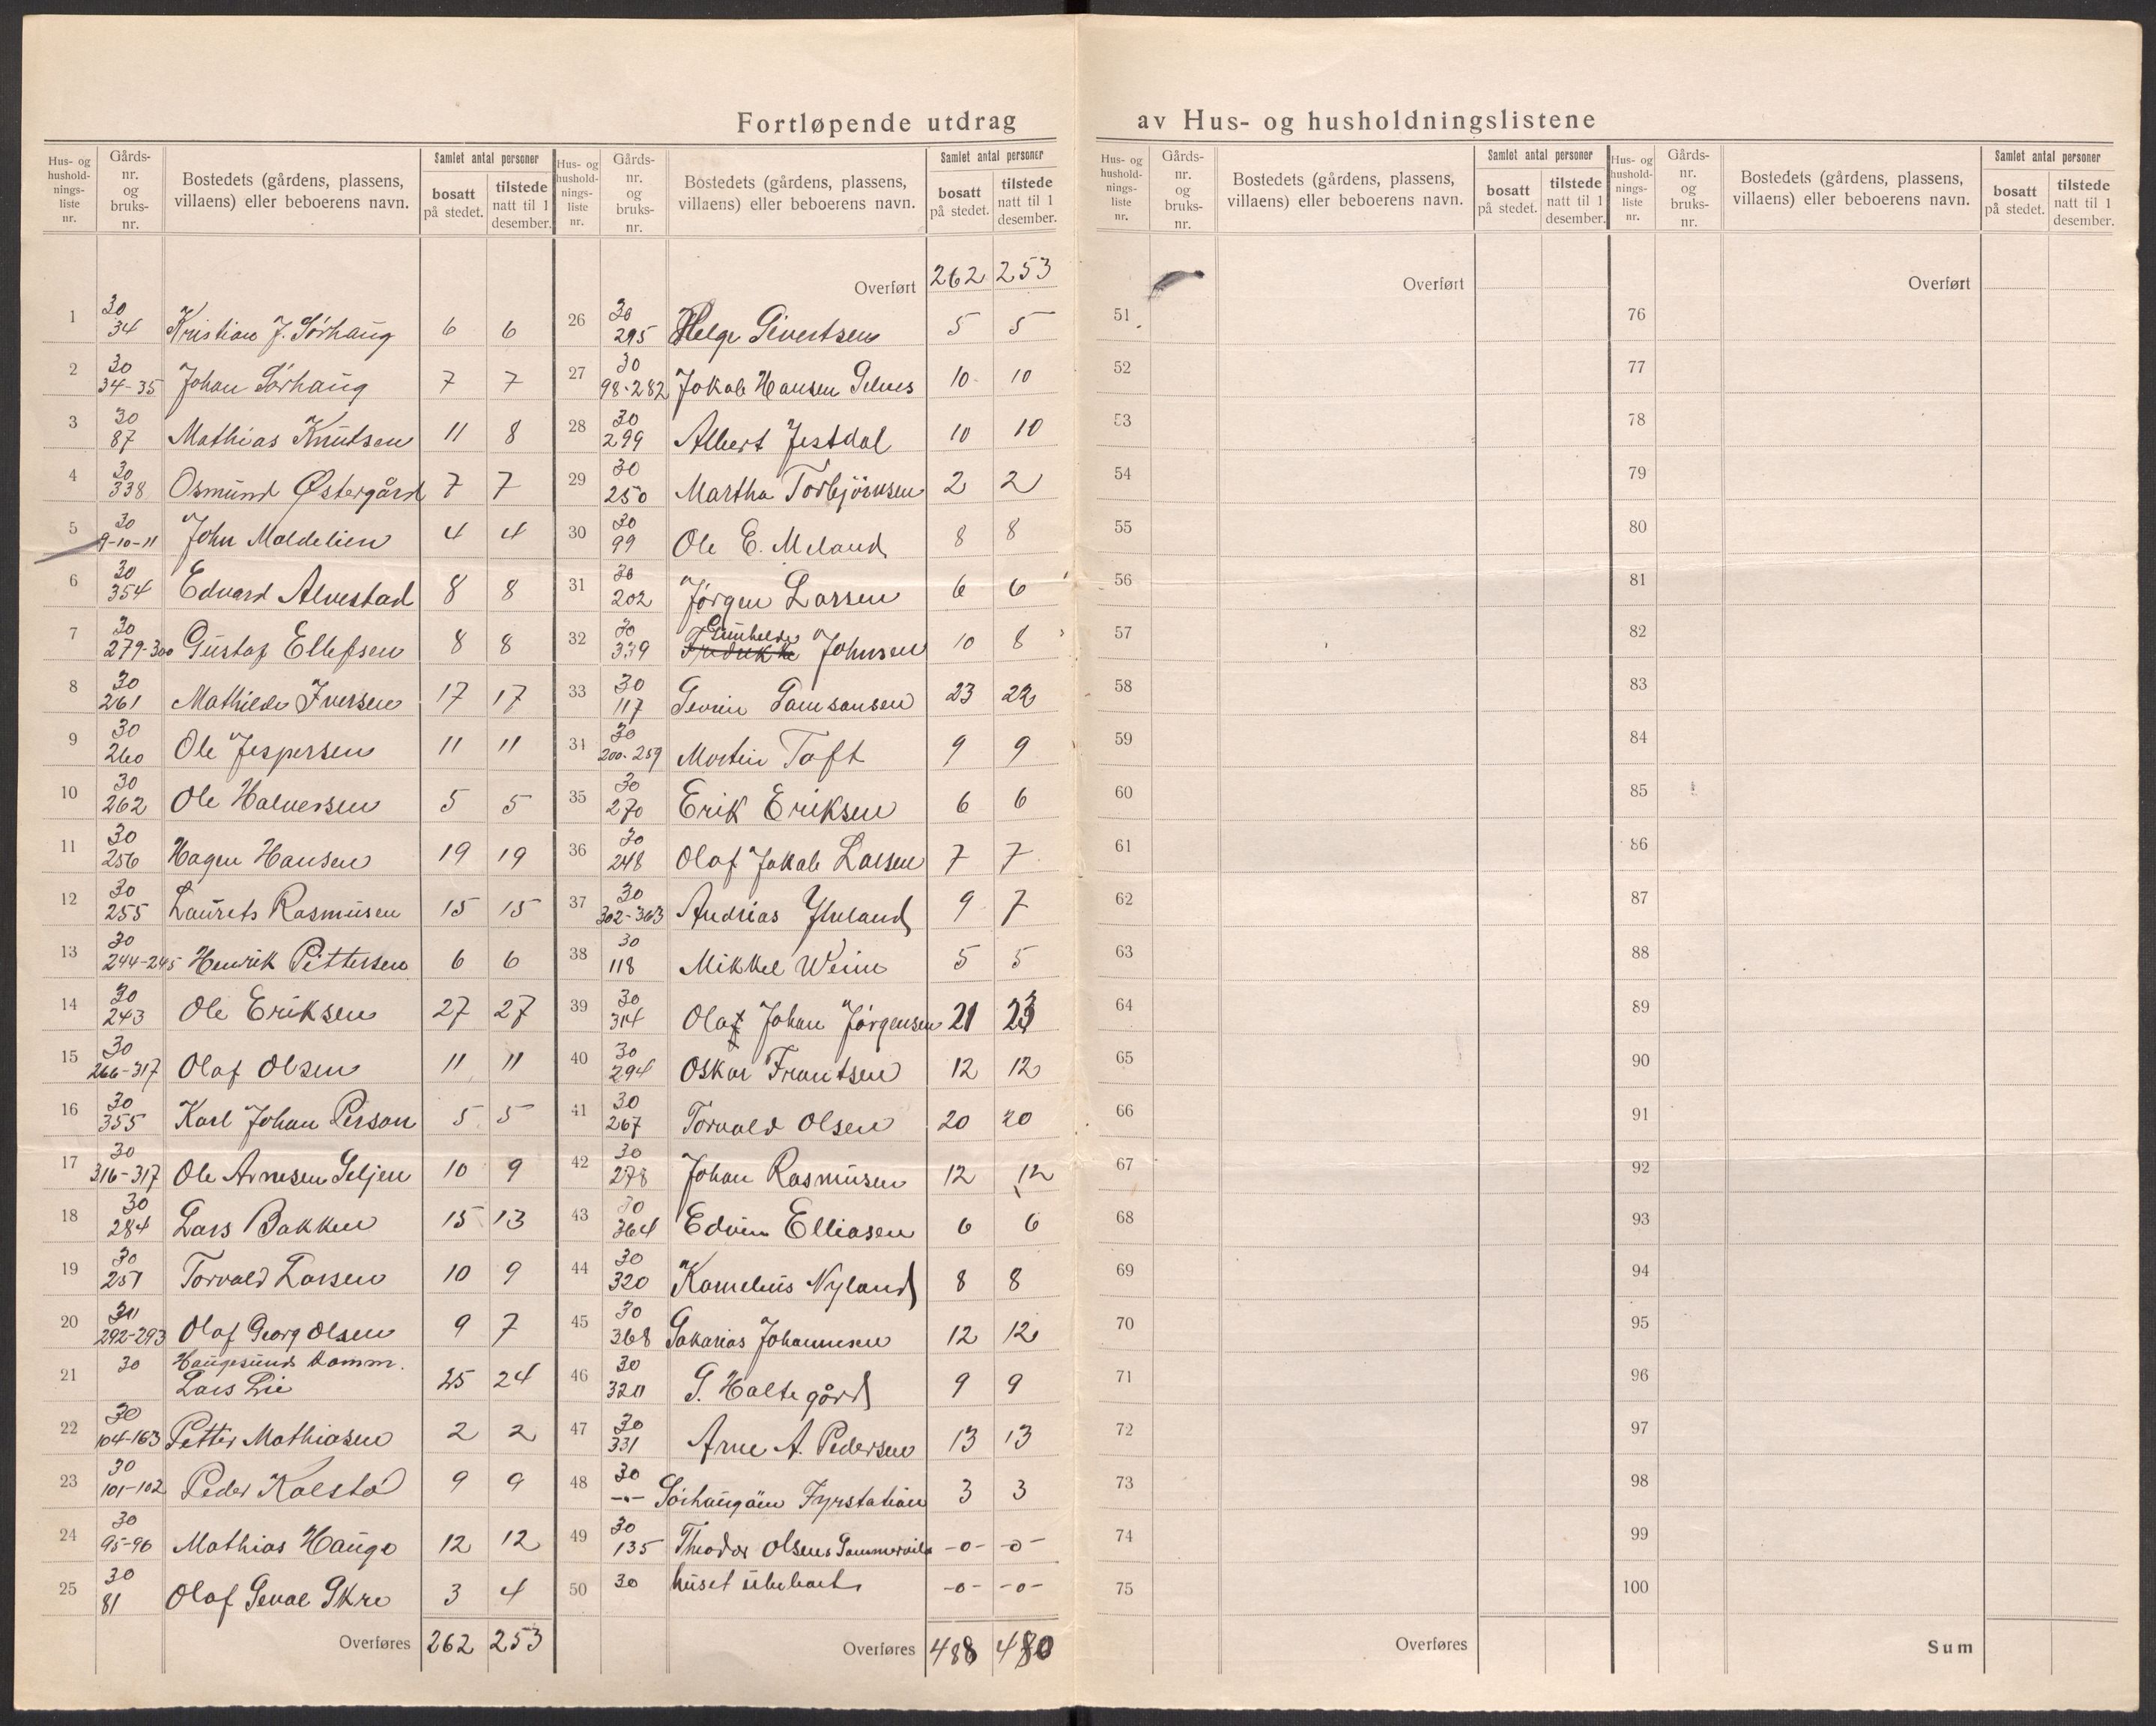 Fortløpende utdrag av Hus- og husholdningslistene
Hus- og husholdnings-liste nr. | Gårds-nr. og bruks-nr. | Bostedets (gårdens, plassens, villaens) eller beboerens navn. | Samlet antal personer | bosatt på stedet. | tilstede natt til 1 desember.
1 30 34 Kristian J. Sörhaug 6 6
2 30 34-35 Johan Sörhaug 7 7
3 30 87 Mathias Knutsen 11 8
4 30 338 Osmund Østergård 7 7
5 30 9-10-11 John Moldelien 4 4
6 30 354 Edvard Alvestad 8 8
7 30 279-300 Gustaf Ellefsen 8 8
8 30 261 Mathilde Iversen 17 17
9 30 260 Ole Jespersen 11 11
10 30 262 Ole Halversen 5 5
11 30 256 Hagen Hansen 19 19
12 30 255 Laurets Rasmusen 15 15
13 30 244-245 Henrik Pittersen 6 6
14 30 243 Ole Eriksen 27 27
15 30 266-317 Olaf Olsen 11 11
16 30 355 Karl Johan Person 5 5
17 30 316-317 Ole Arnesen Seljen 10 9
18 30 284 Lars Bakken 15 13
19 30 251 Torvald Larsen 10 9
20 30 292-293 Olaf Georg Olsen 9 7
21 30 Haugesunds komm.
Lars Lie 25 24
22 30 104-163 Petter Mathiasen 2 2
23 30 101-102 Peder Kolstø 9 9
24 30 95-96 Mathias Hauge 12 12
25 30 81 Olaf Skre 3 4
Overføres 262 253
Hus- og husholdnings-liste nr. | Gårds-nr. og bruks-nr. | Bostedets (gårdens, plassens, villaens) eller beboerens navn. | Samlet antal personer | bosatt på stedet. | tilstede natt til 1 desember.
Overført 262 253
26 30 295 Helge Sivertsen 5 5
27 30 98-282 Jakob Hansen 10 10
28 30 299 Albert Jestdal 10 10
29 30 250 Martha Torbjörnsen 2 2
30 30 99 Ole E. Meland 8 8
31 30 202 Jörgen Larsen 6 6
32 30 339 Gunhilde Johnsen 10 8
33 30 117 Samsonsen 23 22
34 30 200-259 Martin Toft 9 9
35 30 270 Erik Eriksen 6 6
36 30 248 Olaf Jakob Larsen 7 7
37 30 302-303 Andrias 9 7
38 30 118 Mikkel 5 5
39 30 314 Olaf Johan Jörgensen 21 23
40 30 294 Oskar Frantsen 12 12
41 30 267 Torvald Olsen 20 20
42 30 278 Johan Rasmusen 12 12
43 30 364 Edvin Elliasen 6 6
44 30 320 Kornelius Nyland 8 8
45 30 368 Sakarias Johannesen 12 12
46 30 320 S. Haltegård 9 9
47 30 331 Arne A. Pedersen 13 13
48 30 -"- Sörhaugöen Fyrstation 3 3
49 30 135 Theodor Olsens Sommervila -0- -0-
50 30 huset ubeboet -0- -0-
Overføres 488 480
Hus- og husholdnings-liste nr. | Gårds-nr. og bruks-nr. | Bostedets (gårdens, plassens, villaens) eller beboerens navn. | Samlet antal personer | bosatt på stedet. | tilstede natt til 1 desember.
Overført
51
52
53
54
55
56
57
58
59
60
61
62
63
64
65
66
67
68
69
70
71
72
73
74
75
Overføres
Hus- og husholdnings-liste nr. | Gårds-nr. og bruks-nr. | Bostedets (gårdens, plassens, villaens) eller beboerens navn. | Samlet antal personer | bosatt på stedet. | tilstede natt til 1 desember.
Overført
76
77
78
79
80
81
82
83
84
85
86
87
88
89
90
91
92
93
94
95
96
97
98
99
100
Sum